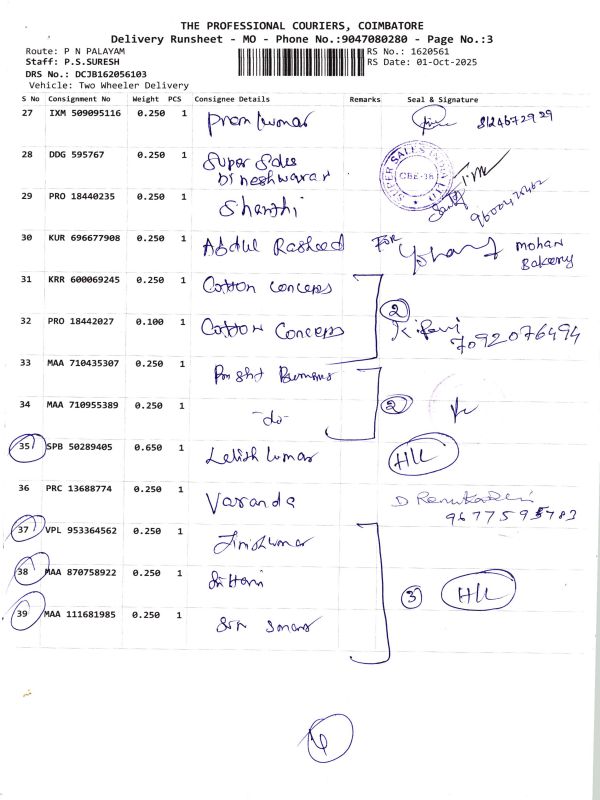 THE PROFESSIONAL COURIERS, COIMBATORE
Delivery Runsheet - MO - Phone No.:9047080280 - Page No.:3
Route: P N PALAYAM RS No.: 1620561
Staff: P.S.SURESH RS Date: 01-Oct-2025
DRS No.: DCJB162056103
Vehicle: Two Wheeler Delivery
S No Consignment No Weight PCS Consignee Details Remarks Seal & Signature
27 IXM 509095116 0.250 1
28 DDG 595767 0.250 1 Super Sales
Dineshwaran
SUPER SALES INDIA LTD
CBE-18
29 PRO 18440235 0.250 1 Shanthi
30 KUR 696677908 0.250 1 Abdul Rasheed FOR Mohan
Bakery
31 KRR 600069245 0.250 1 Cotton concepts
32 PRO 18442027 0.100 1 Cotton Concepts 2
7092076494
33 MAA 710435307 0.250 1
34 MAA 710955389 0.250 1 -do- 2
35 SPB 50289405 0.650 1 Lalith kumar H/L
36 PRC 13688774 0.250 1 Varanda D Renuka Devi
9677595783
37 VPL 953364562 0.250 1
38 MAA 870758922 0.250 1 3 H/L
39 MAA 111681985 0.250 1